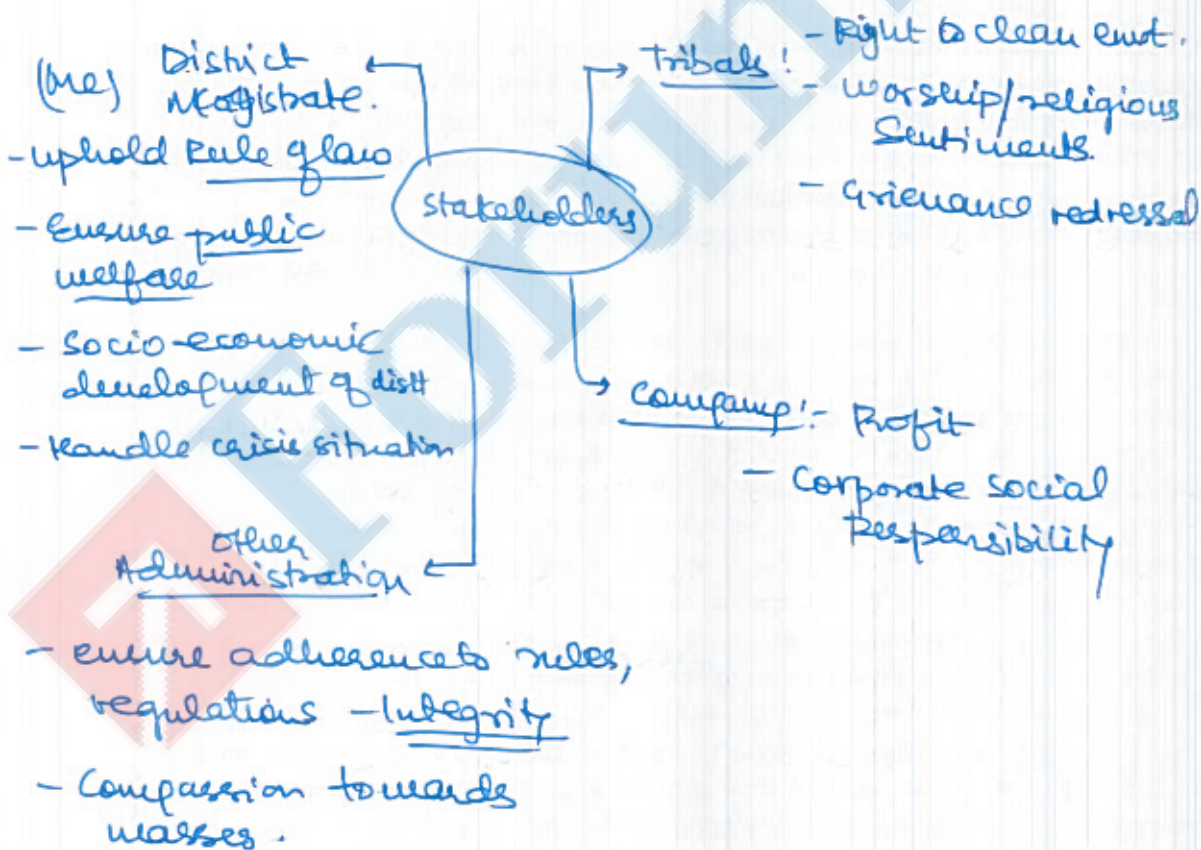 (me) District
Magistrate.
- uphold Rule of law
- Ensure public
welfare
- Socio-economic
development of distt
- Handle crisis situation
Stakeholders
Tribals:
- Right to clean envt.
- worship/religious
Sentiments.
- Grievance redressal
Company:- Profit
- Corporate Social
Responsibility
Other
Administration
- ensure adherence to rules,
regulations - Integrity
- Compassion towards
masses.
Forum